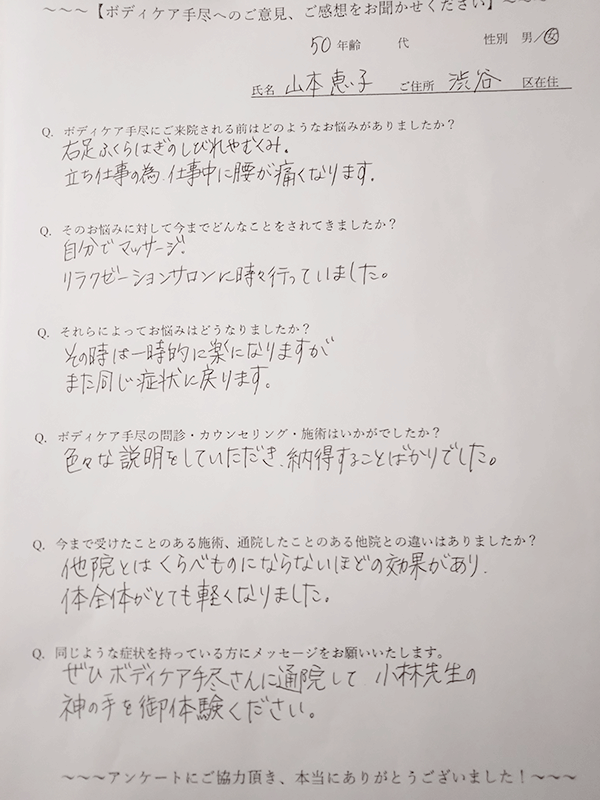 ～～～【ボディケア手尽へのご意見、ご感想をお聞かせください】～～～
50 年齢 代 性別 男／女
氏名 山本恵子 ご住所 渋谷 区在住
Q. ボディケア手尽にご来院される前はどのようなお悩みがありましたか？
右足ふくらはぎのしびれやむくみ.
立ち仕事の為.仕事中に腰が痛くなります.
Q. そのお悩みに対して今までどんなことをされてきましたか？
自分でマッサージ.
リラクゼーションサロンに時々行っていました。
Q. それらによってお悩みはどうなりましたか？
その時は一時的に楽になりますが
また同じ症状に戻ります。
Q. ボディケア手尽の問診・カウンセリング・施術はいかがでしたか？
色々な説明をしていただき.納得することばかりでした。
Q. 今まで受けたことのある施術、通院したことのある他院との違いはありましたか？
他院とはくらべものにならないほどの効果があり.
体全体がとても軽くなりました。
Q. 同じような症状を持っている方にメッセージをお願いいたします。
ぜひボディケア手尽さんに通院して 小林先生の
神の手を御体験ください。
～～～アンケートにご協力頂き、本当にありがとうございました！～～～